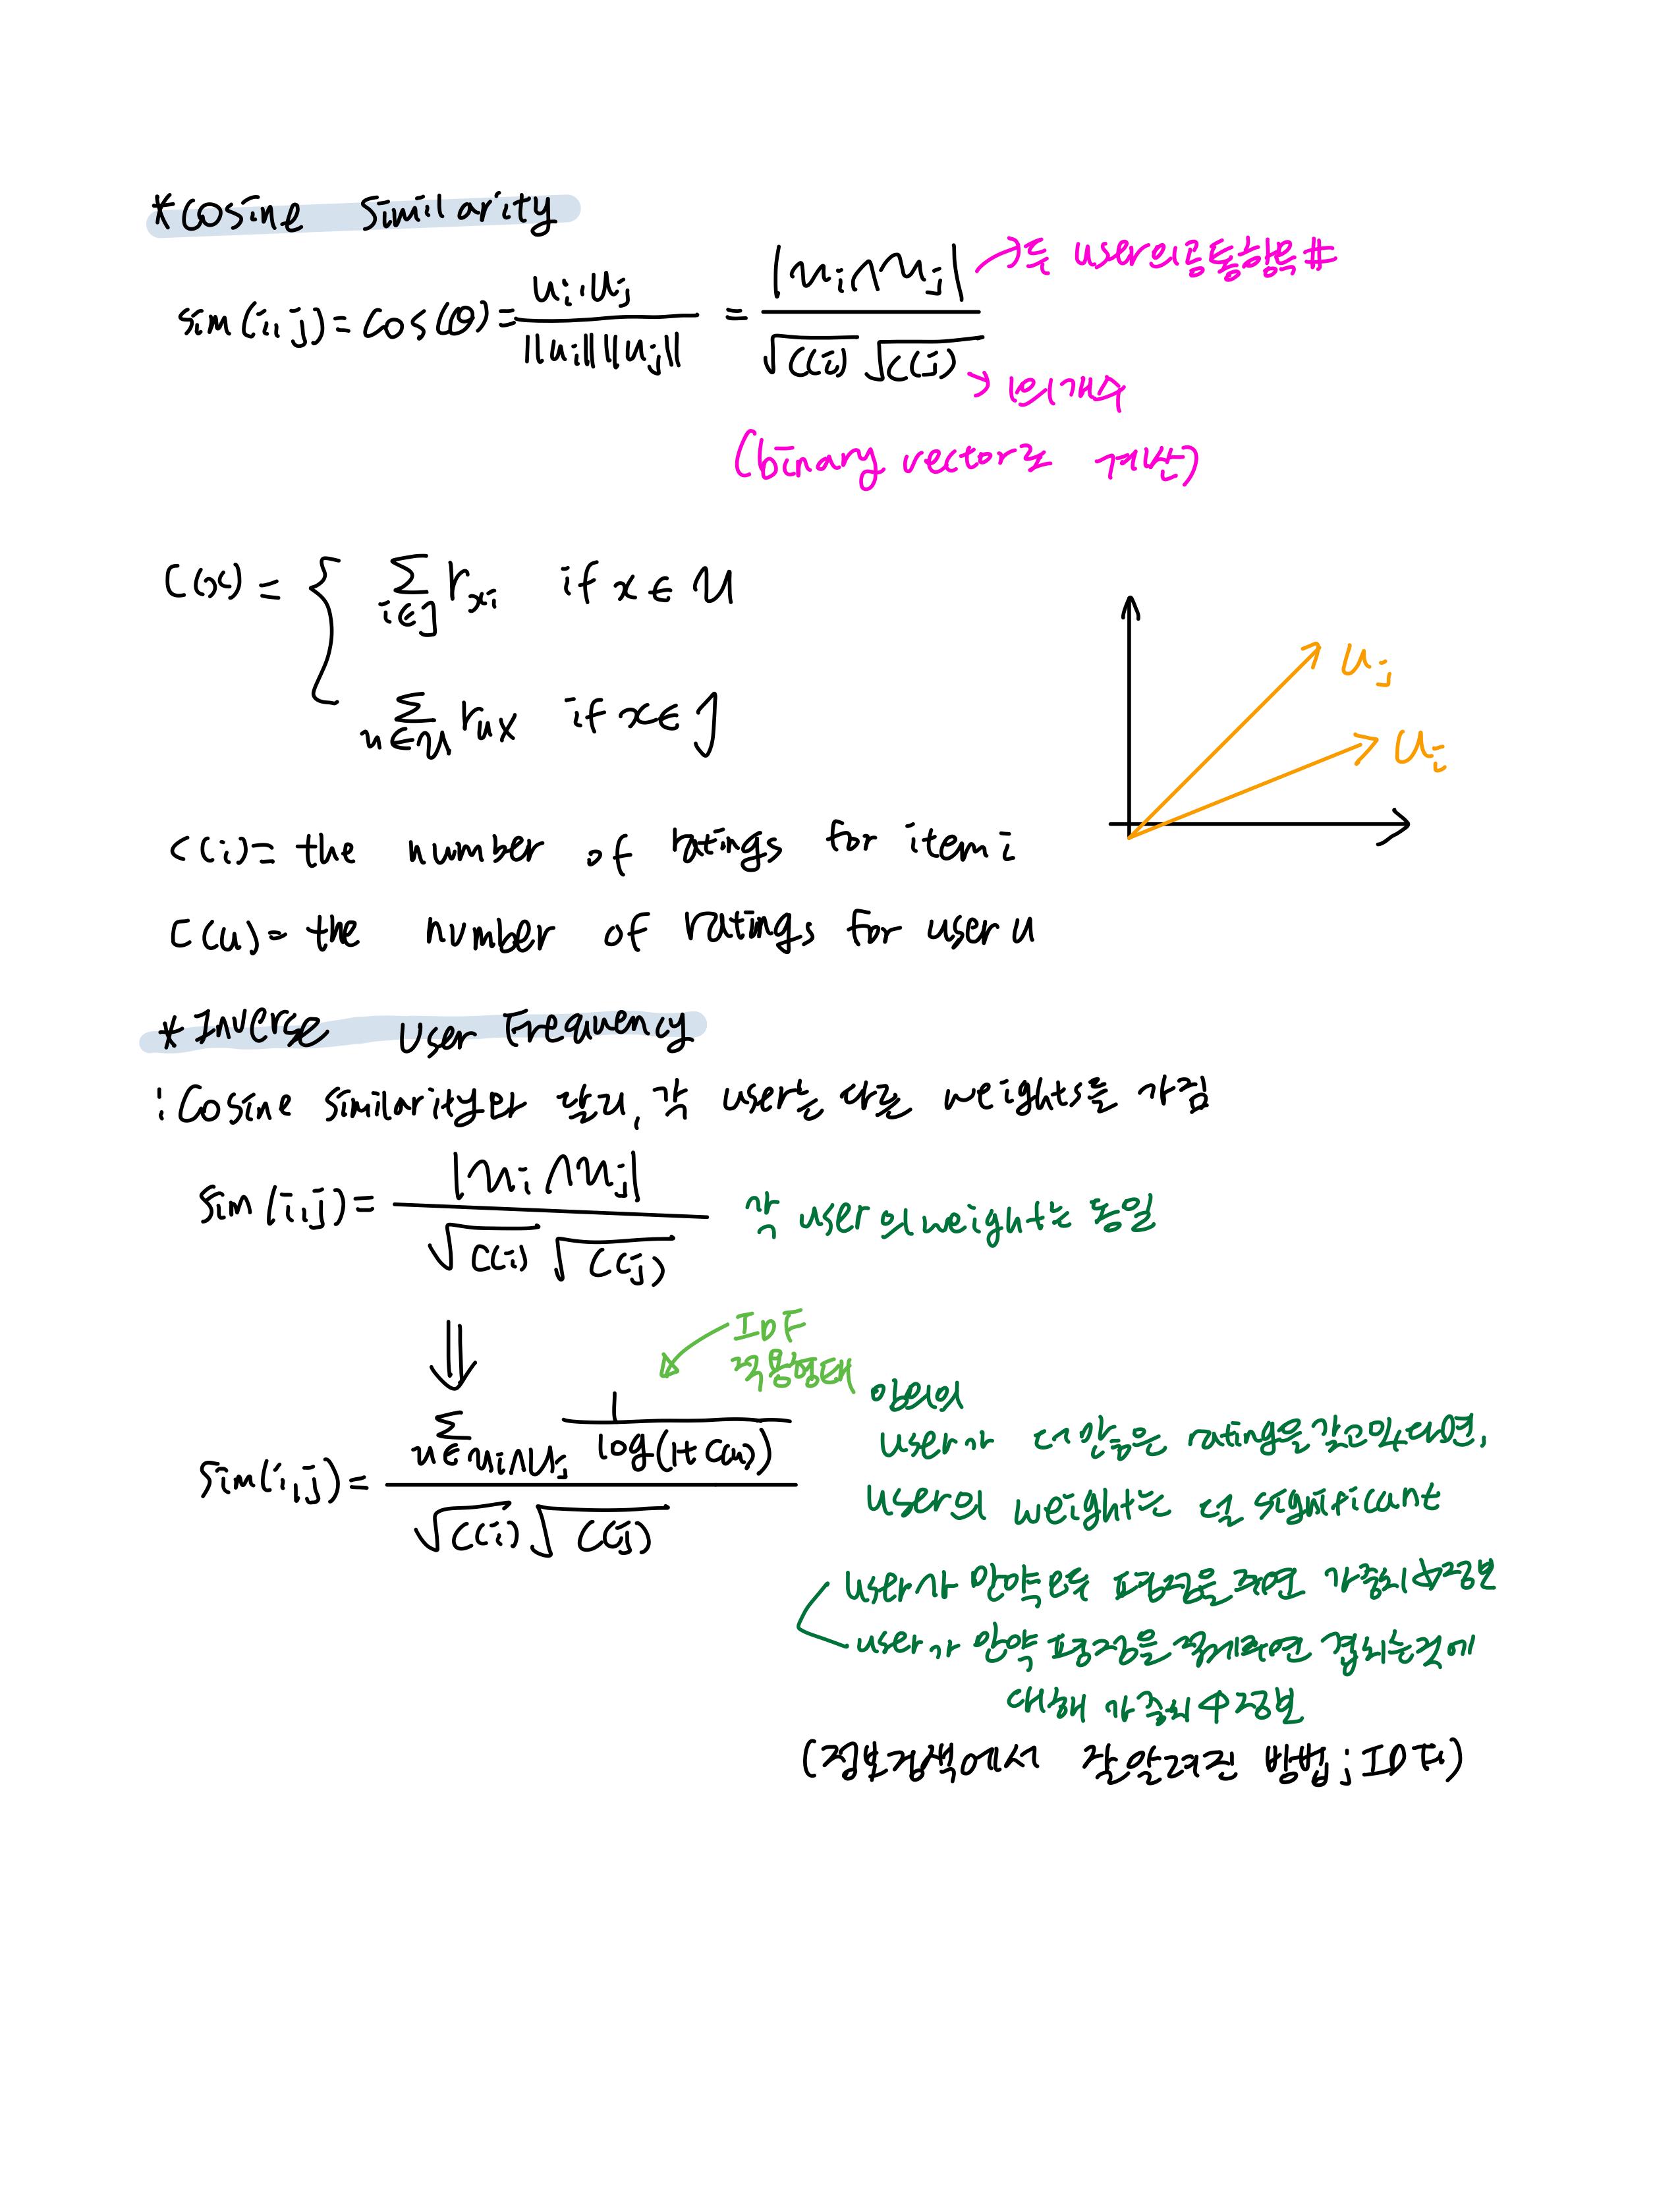 *Cosine Similarity
sim(i,j)=cos(θ)= u_i·u_j / ||u_i|| ||u_j|| = |U_i∩U_j| / √C(i) √C(j)
→ 두 user의 공통항목 #
→ 1의 개수
(binary vector로 계산)
C(x) = { Σ_{i∈J} r_{xi} if x ∈ U
Σ_{u∈U} r_{ux} if x ∈ J
u_j
u_i
C(i) = the number of ratings for item i
C(u) = the number of ratings for user u
* Inverse User Frequency
: Cosine similarity랑 달리, 각 user는 다른 weights를 가짐
sim(i,j) = |U_i∩U_j| / √C(i) √C(j) 각 user의 weight는 동일
⇓
IDF
적용형태
sim(i,j) = Σ_{u∈U_i∩U_j} 1/log(1+C(u)) / √C(i) √C(j)
user가 더 많은 rating을 갖고있다면,
user의 weight는 덜 significant
user가 만약 모두 평점을 주면 가중치 ↓ 정보
user가 만약 평점을 적게주면 겹치는것에
대해 가중치 ↑ 정보
(정보검색에서 잘 알려진 방법; IDF)